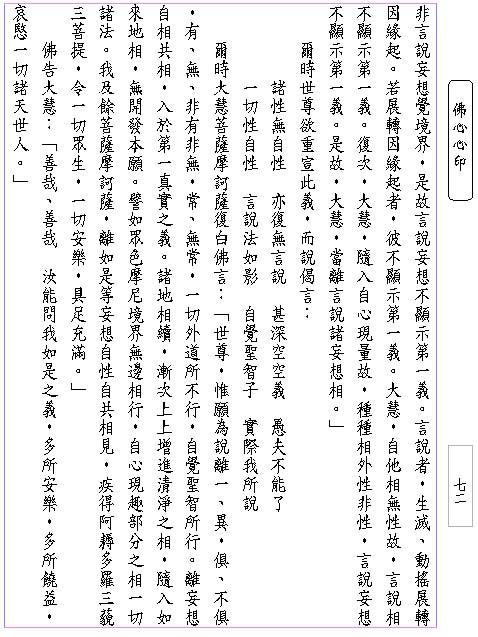 佛心心印
七二
非言說妄想覺境界，是故言說妄想不顯示第一義。言說者，生滅、動搖展轉
因緣起。若展轉因緣起者，彼不顯示第一義。大慧，自他相無性故，言說相
不顯示第一義。復次，大慧，隨入自心現量故，種種相外性非性，言說妄想
不顯示第一義。是故，大慧，當離言說諸妄想相。」
爾時世尊欲重宣此義，而說偈言：
諸性無自性　亦復無言說　甚深空空義　愚夫不能了
一切性自性　言說法如影　自覺聖智子　實際我所說
爾時大慧菩薩摩訶薩復白佛言：「世尊，惟願為說離一、異，俱、不俱
，有、無、非有非無，常、無常，一切外道所不行，自覺聖智所行。離妄想
自相共相，入於第一真實之義。諸地相續，漸次上上增進清淨之相，隨入如
來地相，無開發本願。譬如眾色摩尼境界無邊相行，自心現趣部分之相一切
諸法。我及餘菩薩摩訶薩，離如是等妄想自性自共相見，疾得阿耨多羅三藐
三菩提，令一切眾生，一切安樂，具足充滿。」
佛告大慧：「善哉、善哉　汝能問我如是之義，多所安樂，多所饒益，
哀愍一切諸天世人。」